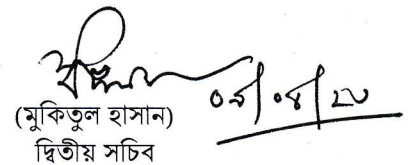 ০৯/০৪/২০
(মুকিতুল হাসান)
দ্বিতীয় সচিব